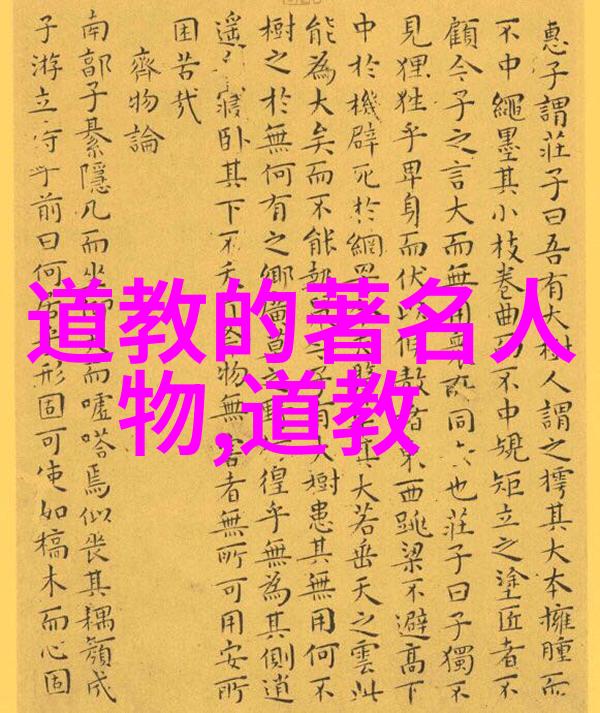 道教的著名人
物,道教
惠子謂莊子曰吾有大樹人謂之樗其大本擁腫而
不中繩墨其小枝卷曲 不中規矩立之塗匠者不
顧今子之言大而無用 所同 也莊子曰子獨不
見狸狌乎卑身而伏以候敖者東西跳梁不避高下
中於機辟死於網 其大若垂天之雲此
能為大矣而不能 子有大樹患其無用何不
樹之於無何有之鄉廣莫之 徨乎無為其側逍
遙 寢臥其下不夭 物無害者無所可用安所
困苦哉
齊物論
南郭子綦隱几而坐 而噓嗒焉似喪其耦顏成
子游立侍乎前曰何居 形固可使如槁木而心固